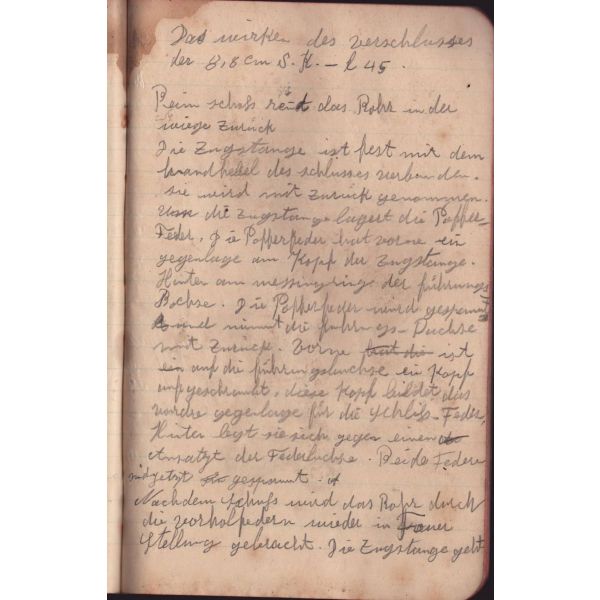 Das wirken des verschlusses
der 8,8 cm S.K. – l 45.
Beim schuss rent das Rohr in der
wiege Zurück
Die Zugstange ist fest mit dem
handhebel des schlusses verbunden.
sie wird mit Zurück genommen.
die Zugstange lagert die Popper-
Feder. Die Popperfeder hat vorne ein
gegenlage am Kopf der Zugstange.
Hinten am messingringe der führungs
Bochse. Die Popperfeder wird gespannt
und nimmt die führungs-Buchse
mit Zurück. Vorne hat die ist
ein auf die führungsbuchse ein Kopf
aufgeschraubt, diese Kopf bildet das
vordre gegenlage für die Schliss-Feder,
Hinten legt sie sich gegen einen
Ansatzt der Federbuchse. Beide Federn
sind jetzt gespannt.
Nach dem Schuss wird das Rohr durch
die vorholfedern wieder in Feuer
Stellung gebracht. Die Zugstange geht